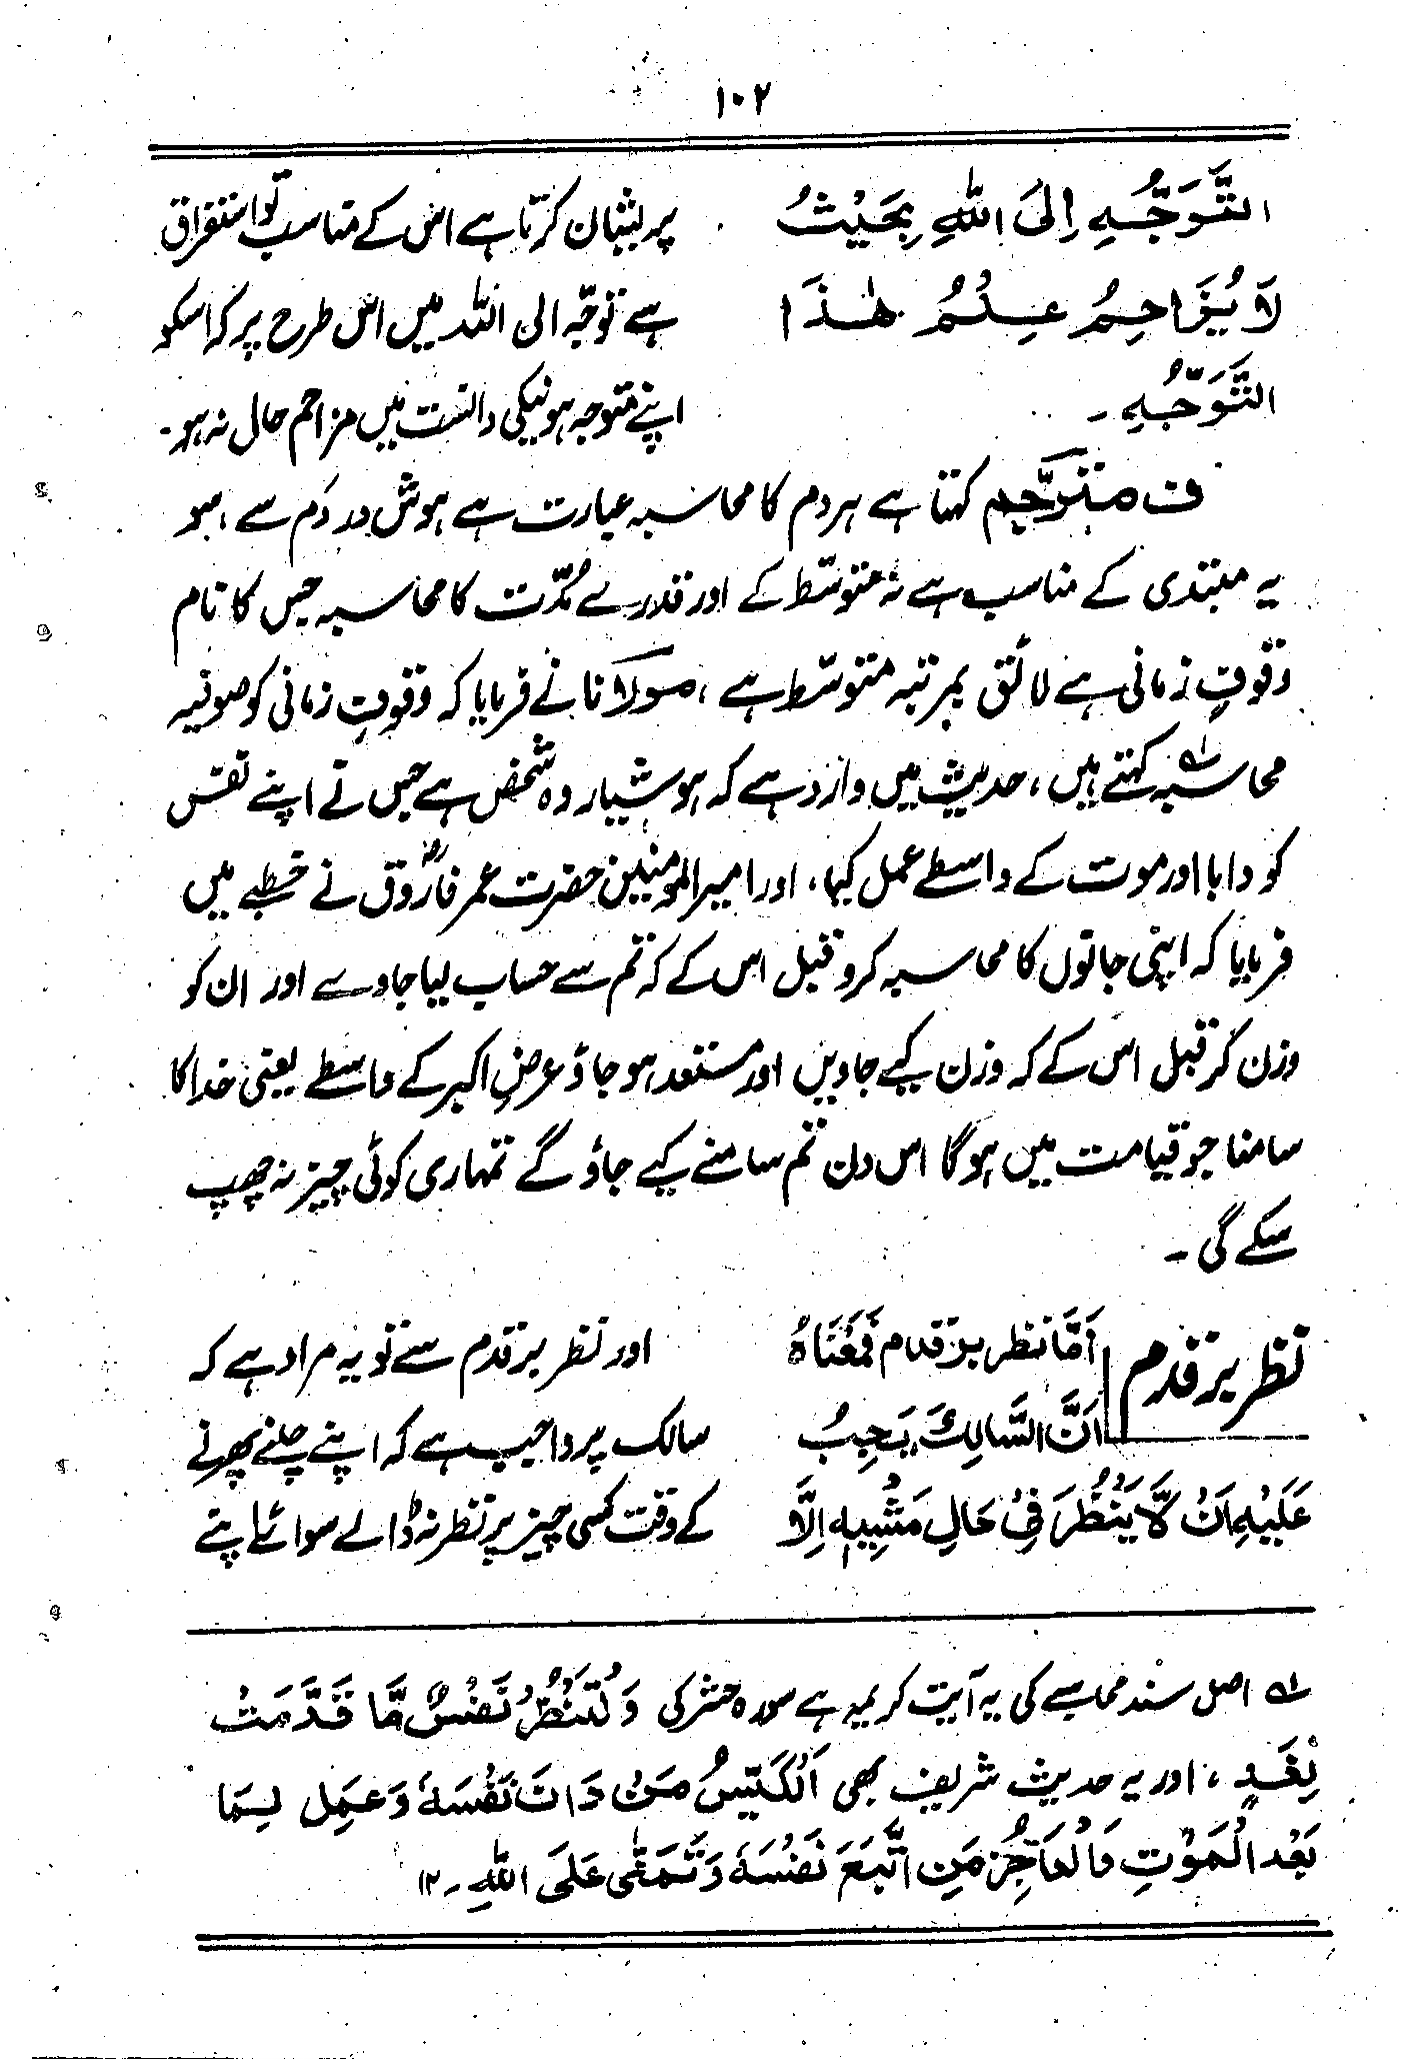 ۱۰۲
التَّوَجُّهِ اِلَى اللّٰهِ بِحَيْثُ
لَا يُزَاحِمُ عِلْمُ هٰذَا
التَّوَجُّهِ ـ
پریشان کرتا ہے اس کے مناسب تو استغراق
ہے توجّہ الی اللہ میں اس طرح پر کہ اسکو
اپنے متوجہ ہونیکی دانست میں مزاحم حال نہ ہو۔
ف مترجم کہتا ہے ہر دم کا محاسبہ عبارت ہے ہوش در دَم سے، سو
یہ مبتدی کے مناسب ہے نہ متوسّط کے اور قدرے مُدّت کا محاسبہ جس کا نام
وقوفِ زمانی ہے لائق بمرتبہ متوسّط ہے، مولانا نے فرمایا کہ وقوفِ زمانی کو صوفیہ
محاسبہ ؂۱ کہتے ہیں، حدیث میں وارد ہے کہ ہوشیار وہ شخص ہے جس نے اپنے نفس
کو دابا اور موت کے واسطے عمل کیا، اور امیرالمومنین حضرت عمر فاروقؓ نے خطبے میں
فرمایا کہ اپنی جانوں کا محاسبہ کرو قبل اس کے کہ تم سے حساب لیا جاوے اور ان کو
وزن کر قبل اس کے کہ وزن کیے جاویں اور مستعد ہو جاؤ عرضِ اکبر کے واسطے یعنی خدا کا
سامنا جو قیامت میں ہوگا اس دن تم سامنے کیے جاؤ گے تمہاری کوئی چیز نہ چھپ
سکے گی ۔
نظر بر قدم
اَمَّا نظر بر قدم فَمَعْنَاهُ
اَنَّ السَّالِكَ يَجِبُ
عَلَيْهِ اَنْ لَّا يَنْظُرَ فِيْ حَالِ مَشْيِهٖ اِلَّا
اور نظر بر قدم سے تو یہ مراد ہے کہ
سالک پر واجب ہے کہ اپنے چلنے پھرنے
کے وقت کسی چیز پر نظر نہ ڈالے سوائے اپنے
؂۱ اصل سند محاسبے کی یہ آیت کریمہ ہے سورہ حشر کی وَلْتَنْظُرْ نَفْسٌ مَّا قَدَّمَتْ
لِغَدٍ، اور یہ حدیث شریف بھی اَلْكَيِّسُ مَنْ دَانَ نَفْسَهٗ وَعَمِلَ لِمَا
بَعْدَ الْمَوْتِ وَالْعَاجِزُ مَنِ اتَّبَعَ نَفْسَهٗ وَتَمَنّٰى عَلَى اللّٰهِ ۔ ۱۲